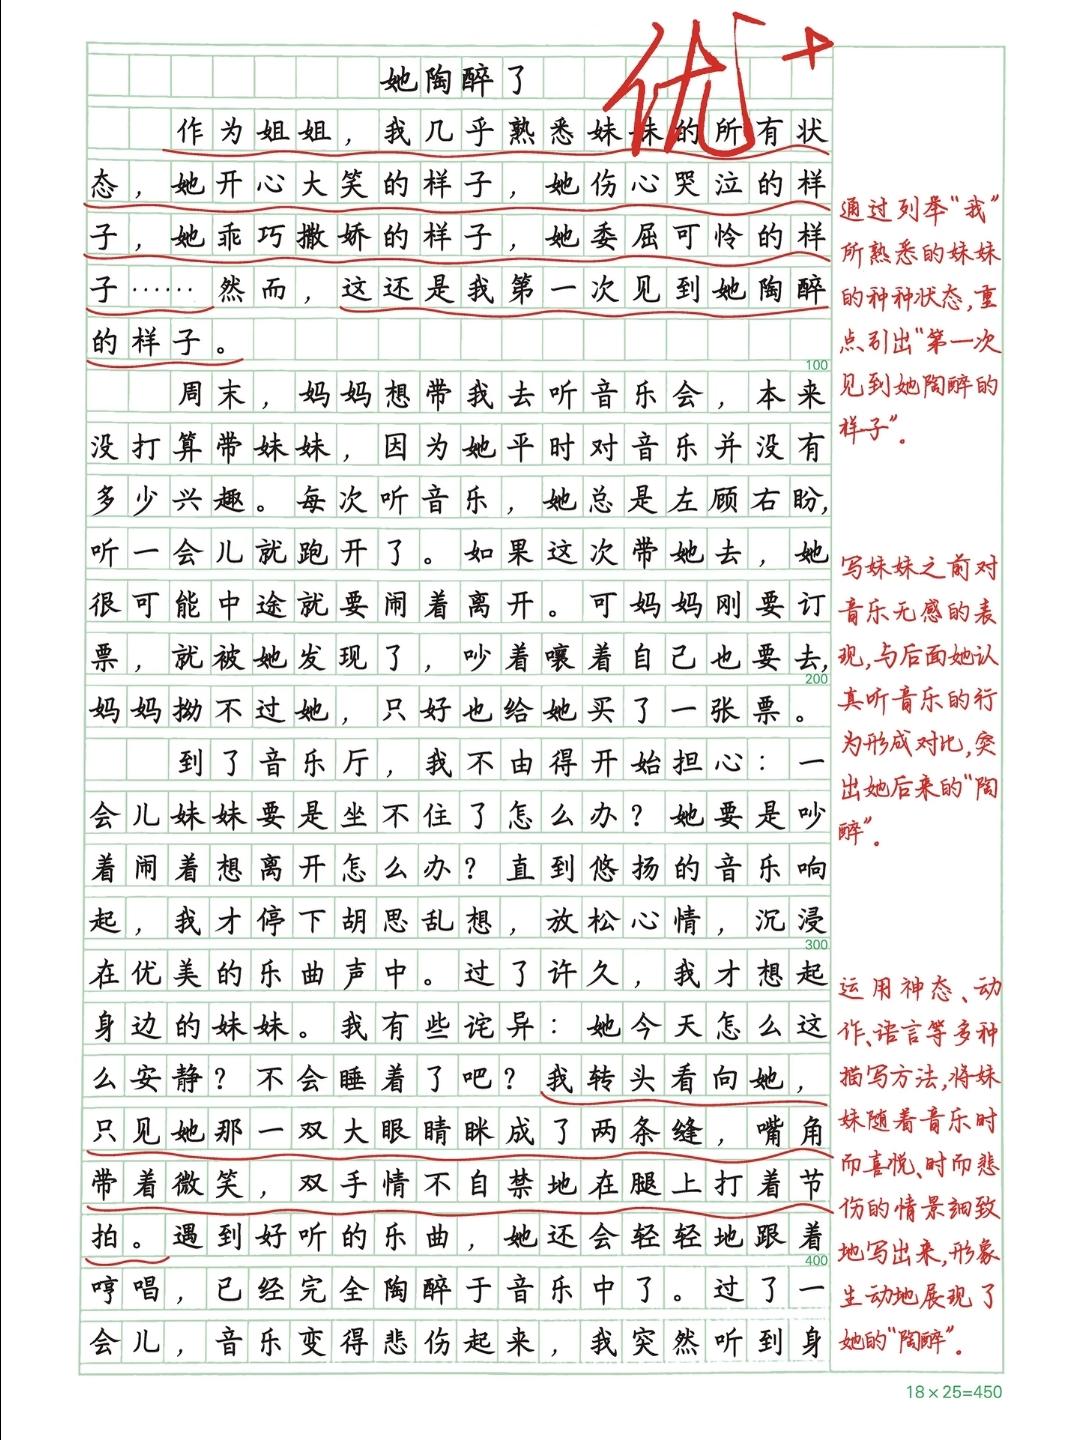 她陶醉了
优+
作为姐姐，我几乎熟悉妹妹的所有状
态，她开心大笑的样子，她伤心哭泣的样
子，她乖巧撒娇的样子，她委屈可怜的样
子……然而，这还是我第一次见到她陶醉
的样子。
100
周末，妈妈想带我去听音乐会，本来
没打算带妹妹，因为她平时对音乐并没有
多少兴趣。每次听音乐，她总是左顾右盼，
听一会儿就跑开了。如果这次带她去，她
很可能中途就要闹着离开。可妈妈刚要订
票，就被她发现了，吵着嚷着自己也要去，
200
妈妈拗不过她，只好也给她买了一张票。
到了音乐厅，我不由得开始担心：一
会儿妹妹要是坐不住了怎么办？她要是吵
着闹着想离开怎么办？直到悠扬的音乐响
起，我才停下胡思乱想，放松心情，沉浸
300
在优美的乐曲声中。过了许久，我才想起
身边的妹妹。我有些诧异：她今天怎么这
么安静？不会睡着了吧？我转头看向她，
只见她那一双大眼睛眯成了两条缝，嘴角
带着微笑，双手情不自禁地在腿上打着节
拍。遇到好听的乐曲，她还会轻轻地跟着
400
哼唱，已经完全陶醉于音乐中了。过了一
会儿，音乐变得悲伤起来，我突然听到身
通过列举“我”
所熟悉的妹妹
的种种状态，重
点引出“第一次
见到她陶醉的
样子”。
写妹妹之前对
音乐无感的表
现，与后面她认
真听音乐的行
为形成对比，突
出她后来的“陶
醉”。
运用神态、动
作、语言等多种
描写方法，将妹
妹随着音乐时
而喜悦、时而悲
伤的情景细致
地写出来，形象
生动地展现了
她的“陶醉”。
18×25=450